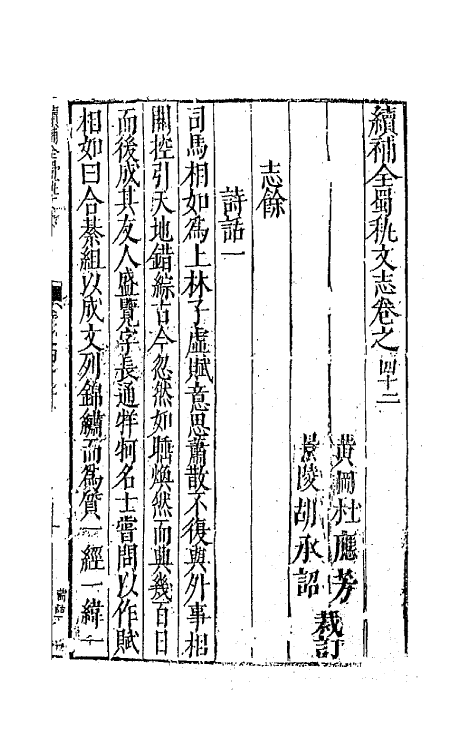 續補全蜀秇文志卷之四十二
黃岡杜應芳
景陵胡承詔 裁訂
志餘
詩話一
司馬相如爲上林子虛賦意思蕭散不復與外事相
關控引天地錯綜古今忽然如睡煥然而興幾百日
而後成其友人盛覽字長通牂牁名士嘗問以作賦
相如曰合綦組以成文列錦繡而爲質一經一緯一